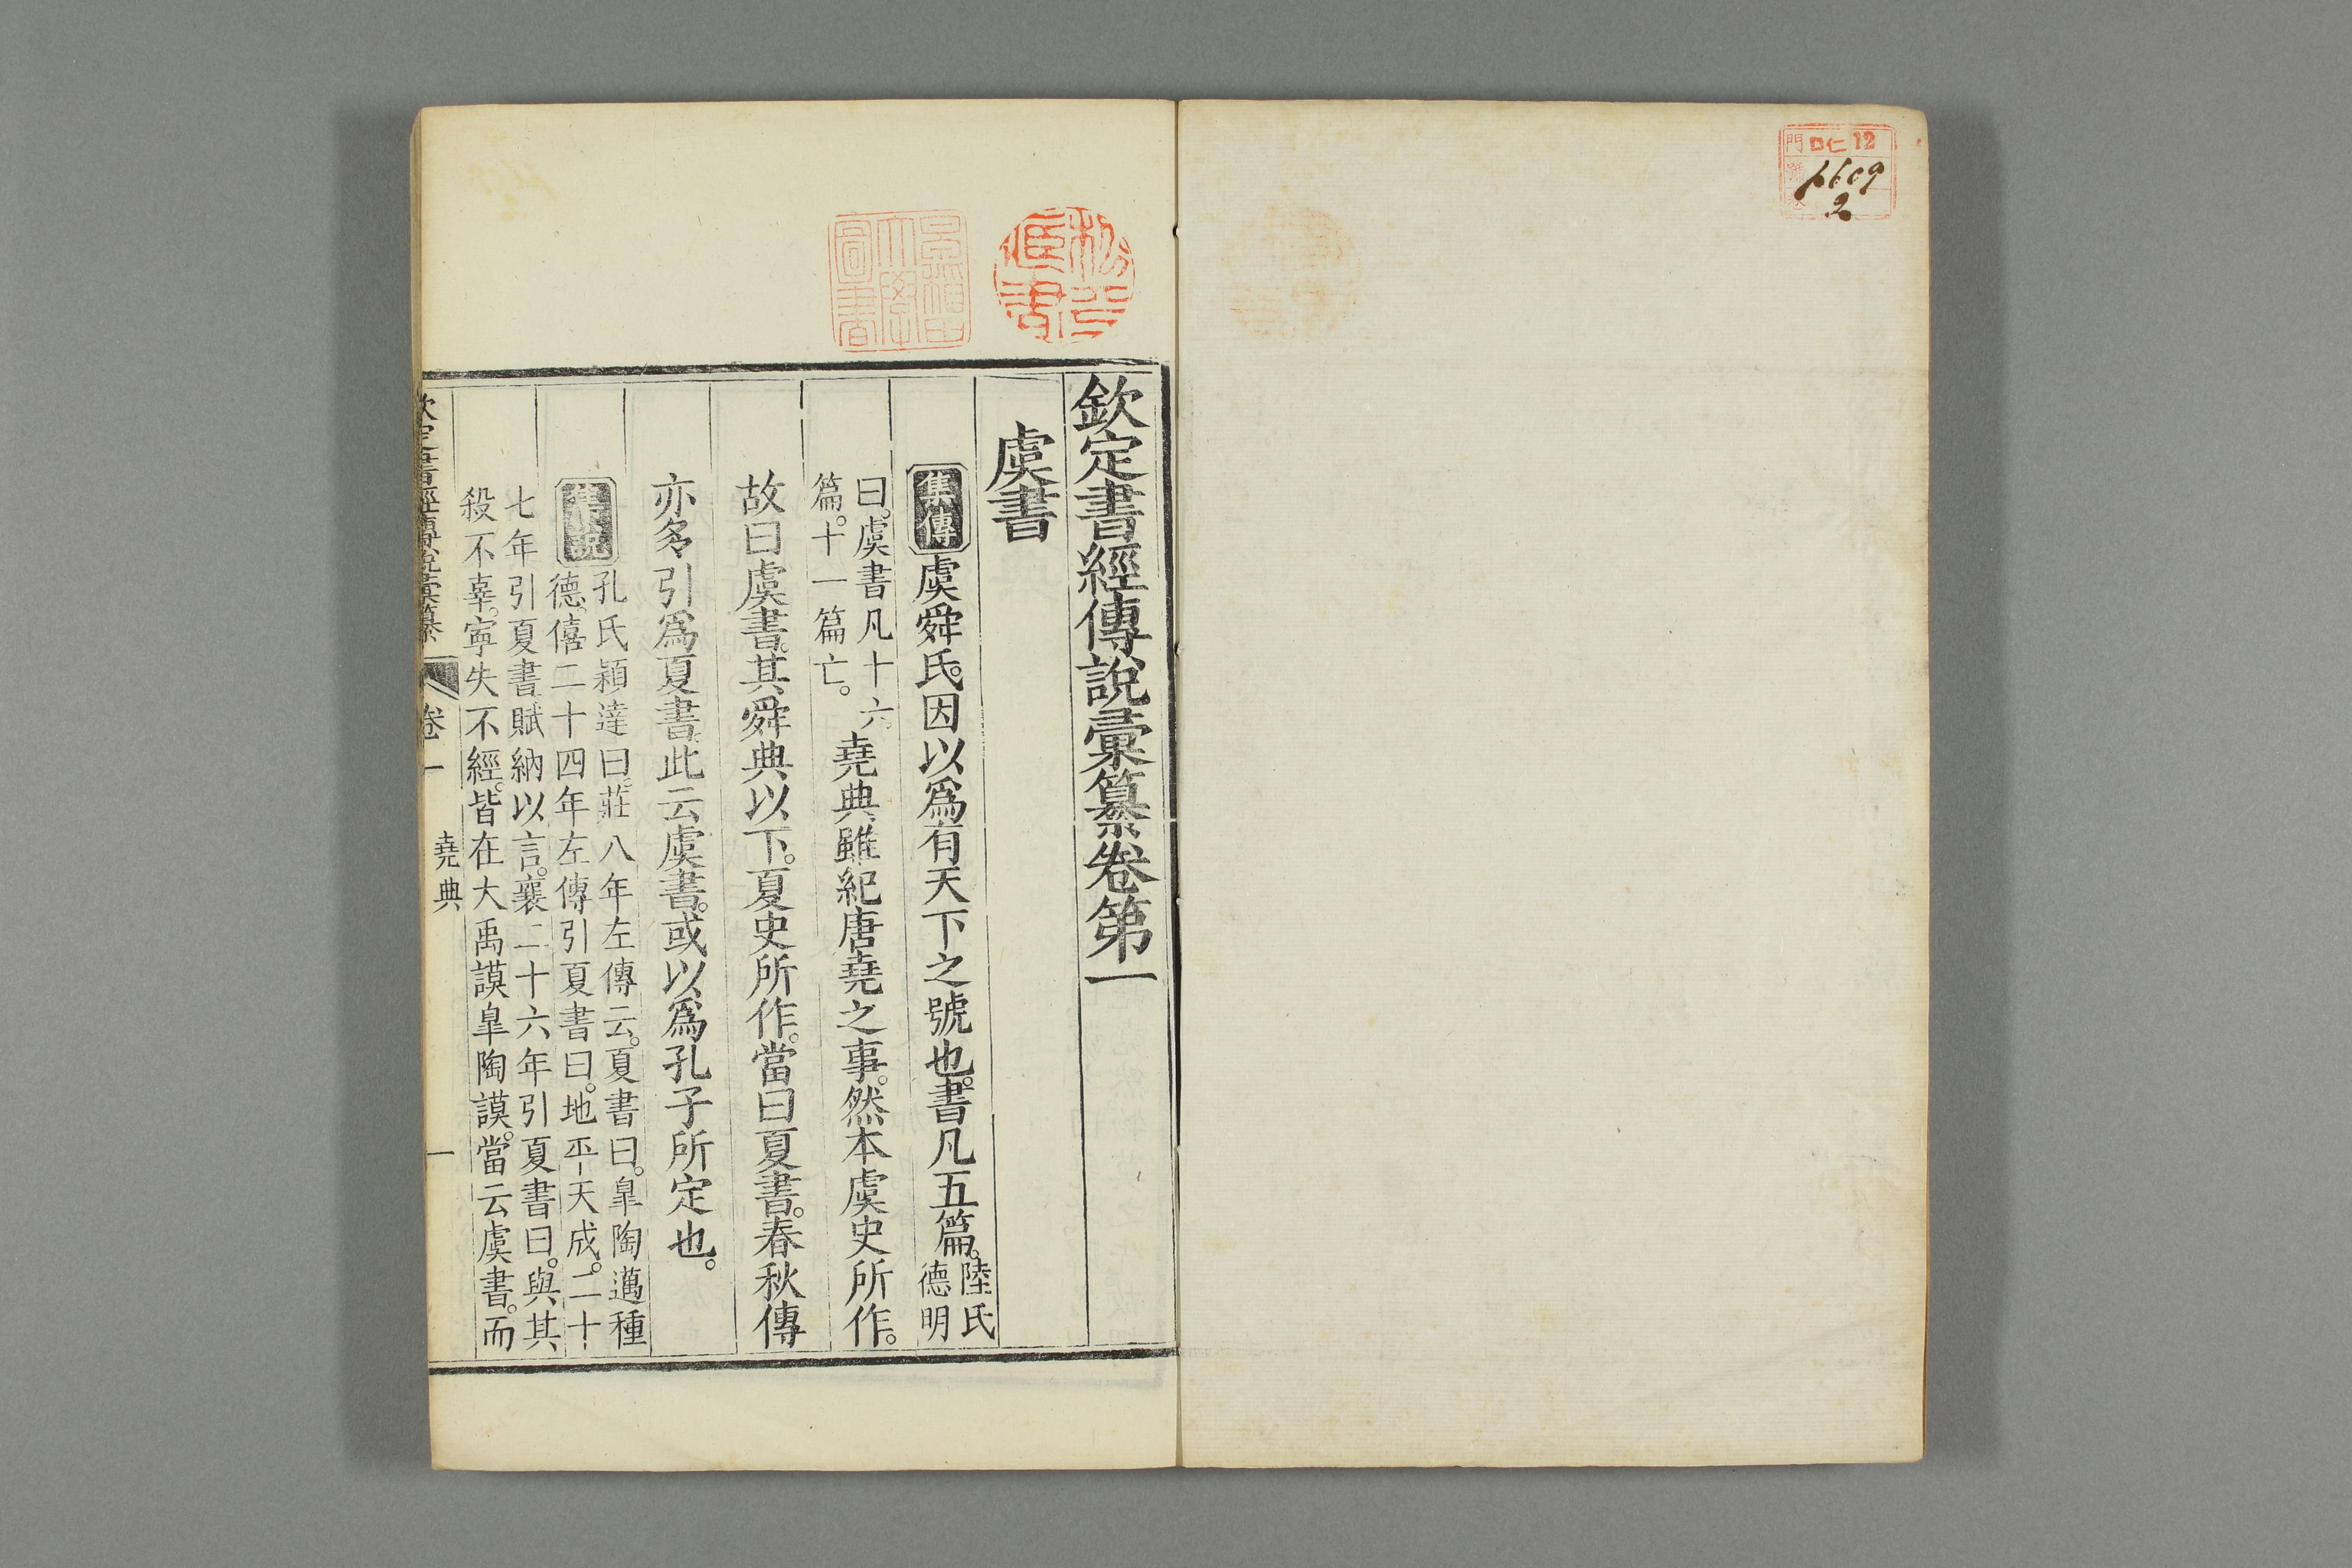 門 口仁 12
1609
2
欽定書經傳說彙纂卷第一
虞書
集傳 虞舜氏。因以爲有天下之號也。書凡五篇。陸氏德明
曰。虞書凡十六
篇。十一篇亡。
堯典雖紀唐堯之事。然本虞史所作。
故曰虞書。其舜典以下。夏史所作。當曰夏書。春秋傳
亦多引爲夏書。此云虞書。或以爲孔子所定也。
集說 孔氏穎達曰。莊八年左傳云。夏書曰。皐陶邁種
德。僖二十四年左傳引夏書曰。地平天成。二十
七年引夏書。賦納以言。襄二十六年引夏書曰。與其
殺不辜。寧失不經。皆在大禹謨皐陶謨。當云虞書。而
欽定書經傳說彙纂 卷一 堯典 一